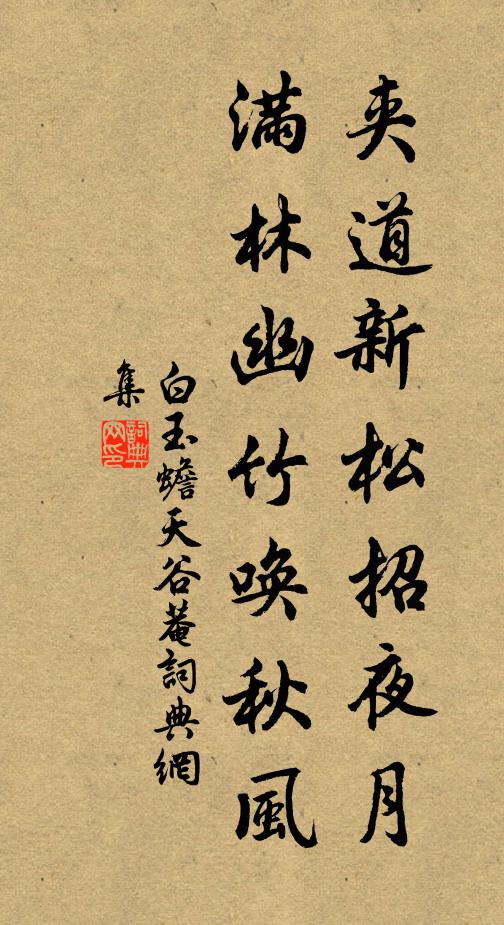 夾道新松招夜月
滿林幽竹喚秋風
白玉蟾天谷菴詞典網
集
詞典
网印